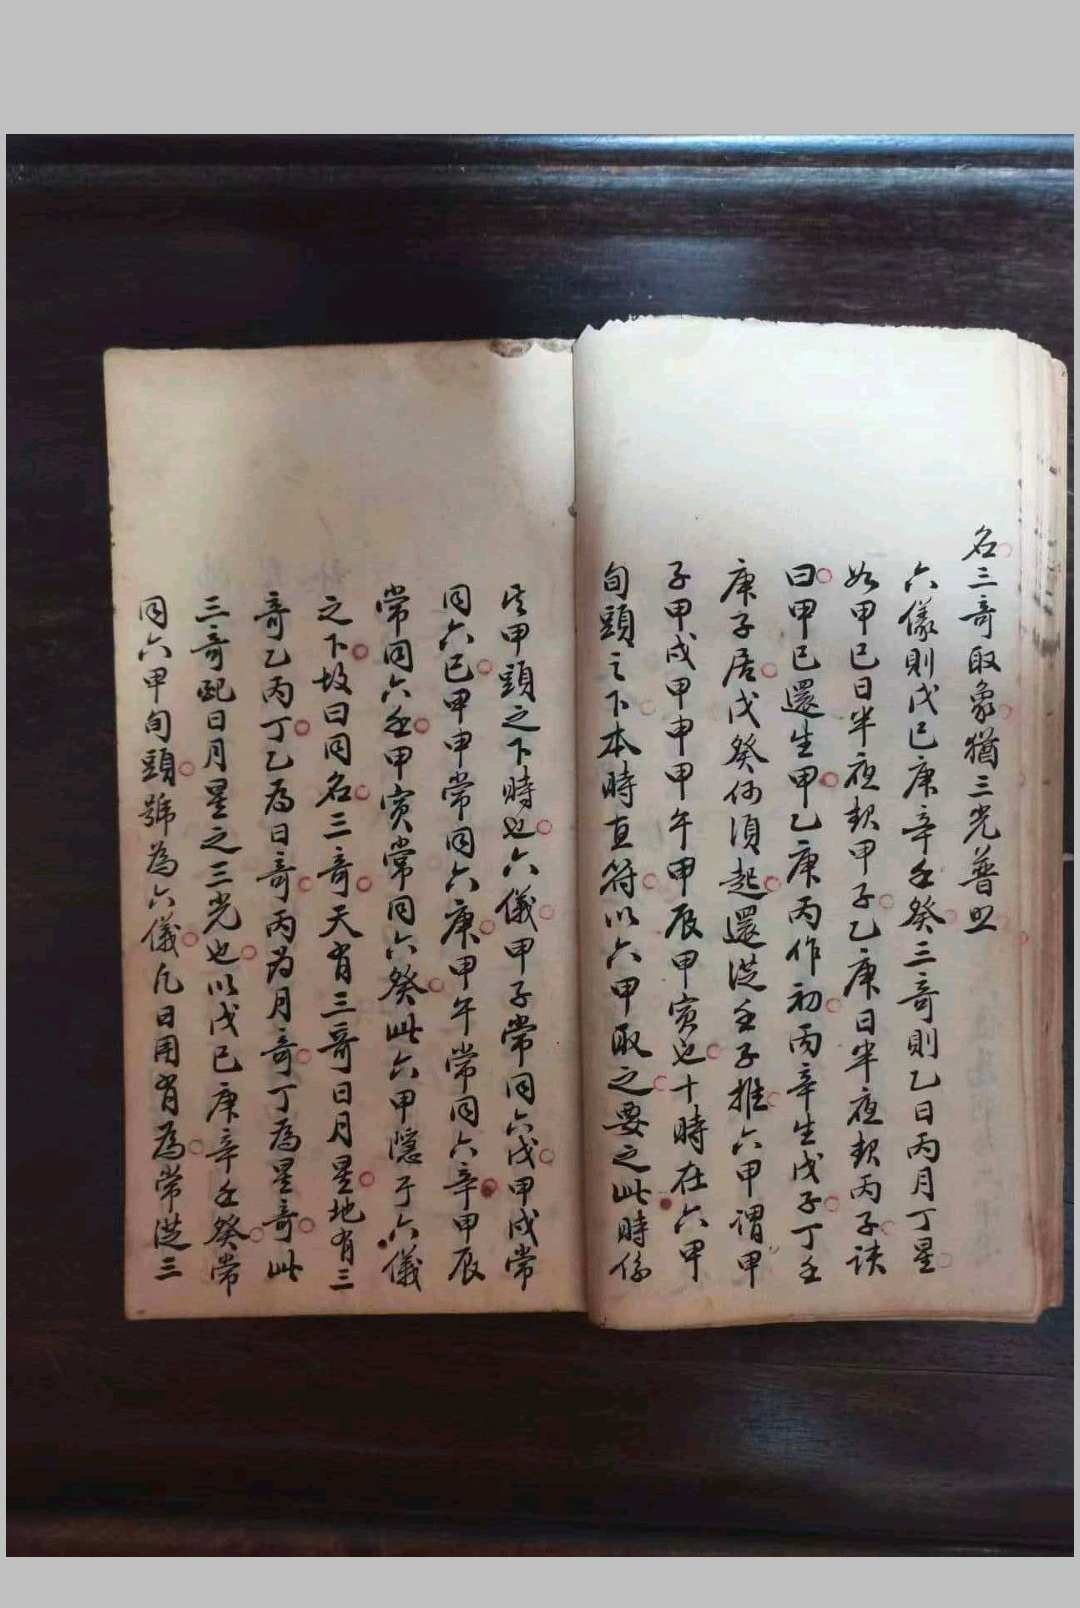 名三奇取象猶三光普照
六儀則戊己庚辛壬癸三奇則乙日丙月丁星
如甲己日半夜起甲子乙庚日半夜起丙子訣
曰甲己還生甲乙庚丙作初丙辛生戊子丁壬
庚子居戊癸何須起還從壬子推六甲謂甲
子甲戌甲申甲午甲辰甲寅也十時在六甲
旬頭之下本時直符以六甲取之要之此時係
甲頭之下時也六儀甲子常同六戊甲戌常
同六己甲申常同六庚甲午常同六辛甲辰
常同六壬甲寅常同六癸此六甲隱于六儀
之下故曰同名三奇天有三奇日月星地有三
奇乙丙丁乙為日奇丙為月奇丁為星奇此
三奇配日月星之三光也以戊己庚辛壬癸常
同六甲旬頭號為六儀凡日用有為常從三